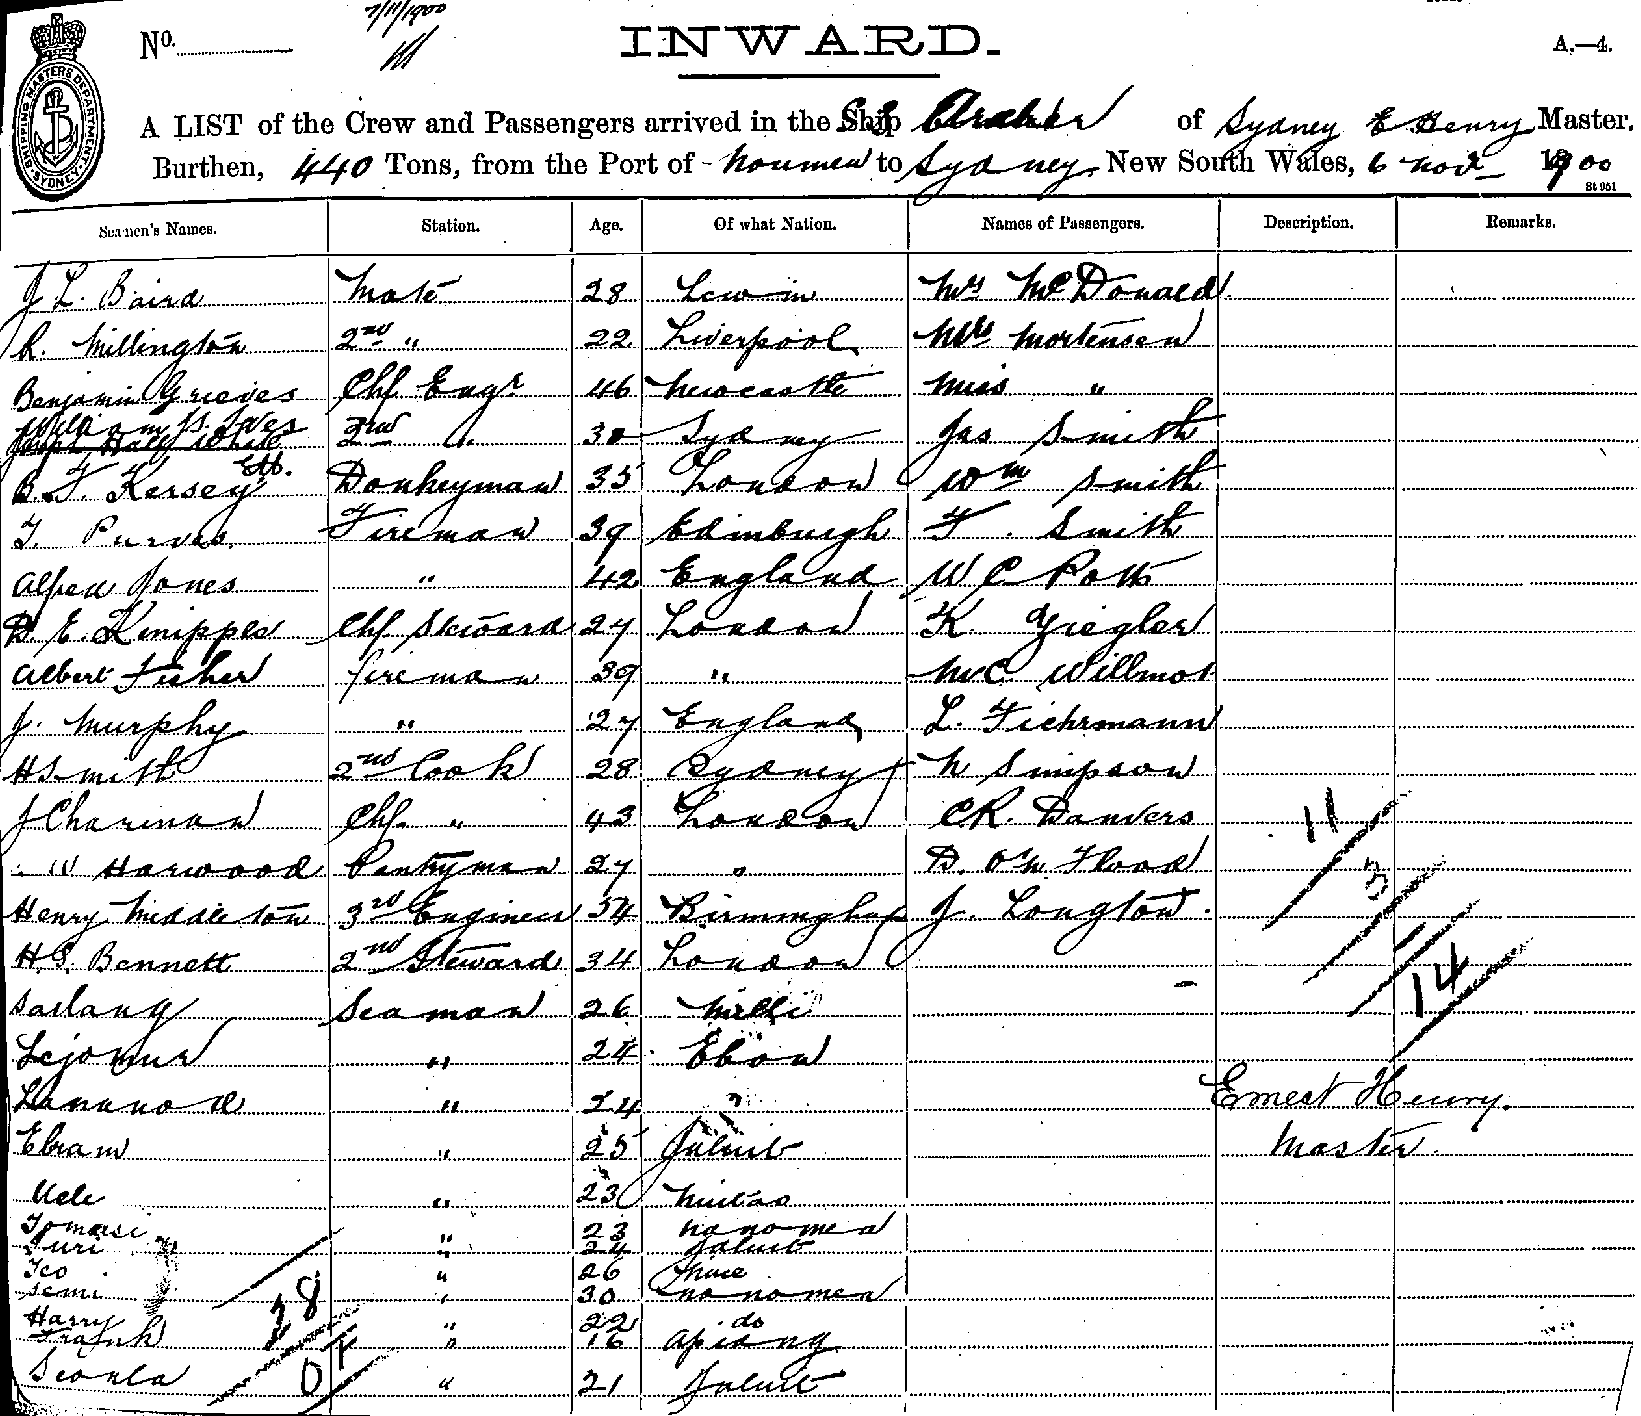 7/11/1900
No.
INWARD.
A.—4.
SHIPPING MASTERS DEPARTMENT SYDNEY
A LIST of the Crew and Passengers arrived in the Ship SS Archer of Sydney E Henry Master.
Burthen, 440 Tons, from the Port of Noumea to Sydney, New South Wales, 6 Nov 1900
St 951
Seamen's Names. Station. Age. Of what Nation. Names of Passengers. Description. Remarks.
J L. Baird Mate 28 Mrs McDonald
R. Millington 2nd " 22 Liverpool Mrs Mortensen
Benjamin Grieves Chf Engr 46 Newcastle Miss "
William 2nd " 30 Sydney Jas Smith
B. F. Kersey Donkeyman 35 London Wm Smith
T. Purves Fireman 39 Edinburgh F. Smith
Alfred Jones " 42 England W C Potts
D. E. Knipples Chf Steward 27 London K. Ziegler
Albert Fisher fireman 39 " McC Willmot
J. Murphy " 27 England L. Fiehrmann
H Smith 2nd Cook 28 Sydney N Simpson
J Charman Chf " 43 London CR. Danvers
W Harwood Pantryman 27 " D. O'N Flood
Henry Middleton 3rd Engineer 34 Birmingham J. Longton
H.S. Bennett 2nd Steward 34 London
Saslang Seaman 26 Milli
Lejomur " 24 Ebon
" 24 "
Ebram " 25 Jaluit
Uele " 23
Tomasi " 23 Nanomea
Turi " 24 Jaluit
Teo " 26
Semi " 30 Nanomea
Harry " 22 do
Frank " 16 Apiang
Seonla " 21 Jaluit
11
3
14
28
Ernest Henry.
Master